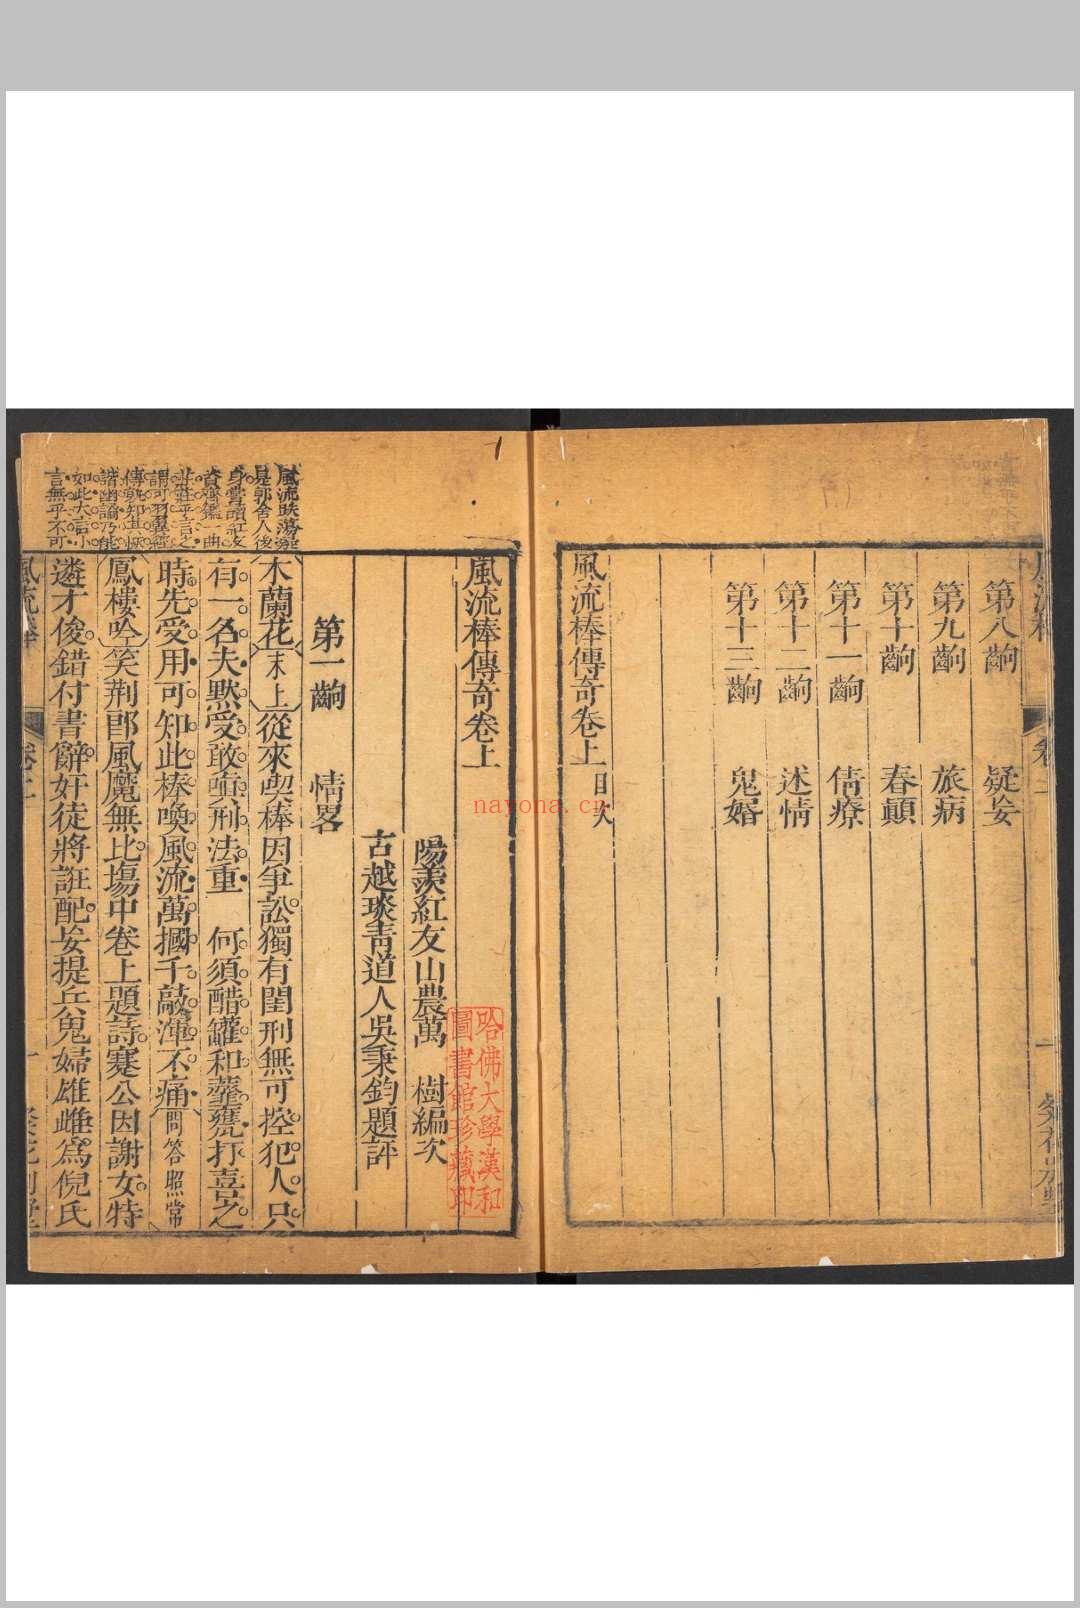 第八齣　疑妾
第九齣　旅病
第十齣　春顛
第十一齣　倩療
第十二齣　述情
第十三齣　鬼婚
風流棒傳奇卷上目次
風流棒傳奇卷上
陽羨紅友山農萬　樹編次
古越琰青道人吳秉鈞題評
哈佛大學漢和
圖書館珍藏印
第一齣　情畧
木蘭花末上從來喫棒因爭訟獨有閨刑無可控犯人只
有一名夫默受敢嗔刑法重　何須醋罐和虀甕打壹另之
時先受用可知此棒喚風流萬摑千敲渾不痛問答照常
鳳樓吟笑荆郎風魔無比塲中卷上題詩蹇公因謝女特
遴才俊錯付書辭奸徒將誑配妾提兵鬼婦雄雌爲倪氏
風流跌蕩
是郭舍人後
身嘗讀紅友
資齊鑑一曲
言無乎不可
nayona.cn